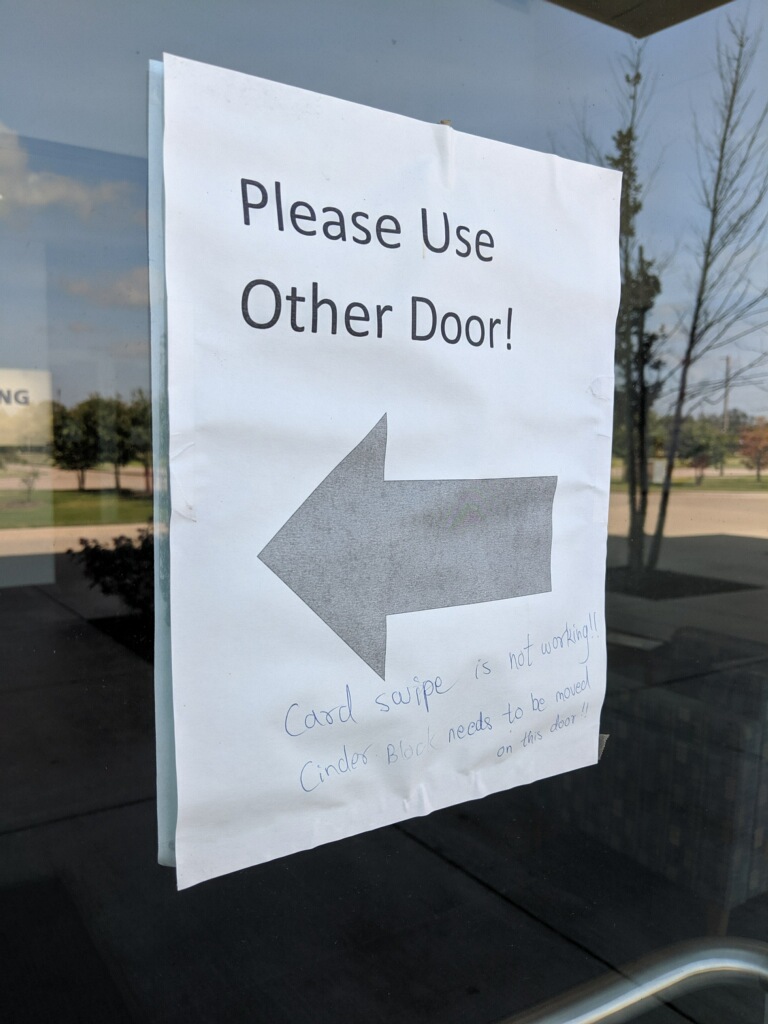 Please Use
Other Door!
NG
Card swipe is not working!!
Cinder Block needs to be moved
on this door!!